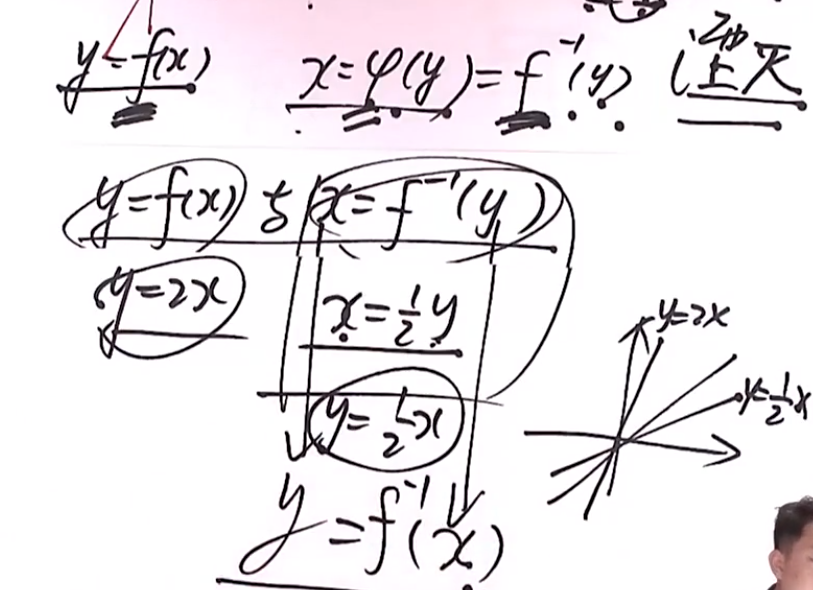 y=f(x) x=φ(y)=f⁻¹(y)
y=f(x) 与 x=f⁻¹(y)
y=2x
x=½y
y=½x
y=f⁻¹(x)
y=2x
y=½x